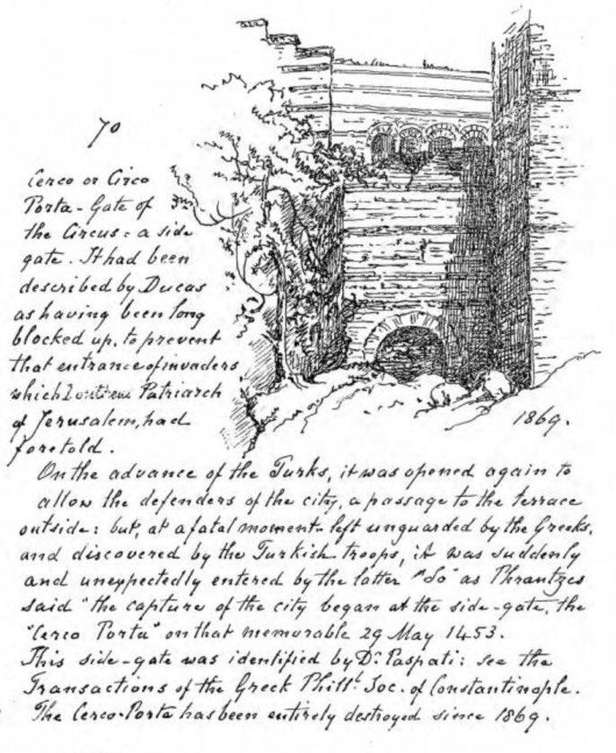 70
Cerco or Circo
Porta - Gate of
the Circus = a side
gate. It had been
described by Ducas
as having been long
blocked up, to prevent
that entrance of invaders
which Patriarch
of Jerusalem, had
foretold.
1869.
On the advance of the Turks, it was opened again to
allow the defenders of the city, a passage to the terrace
outside: but, at a fatal moment left unguarded by the Greeks,
and discovered by the Turkish troops, it was suddenly
and unexpectedly entered by the latter "So" as Phrantzes
said "the capture of the city began at the side-gate, the
"Cerco Porta" on that memorable 29 May 1453.
This side-gate was identified by Dr. Paspati: see the
Transactions of the Greek Phill. Soc. of Constantinople.
The Cerco-Porta has been entirely destroyed since 1869.